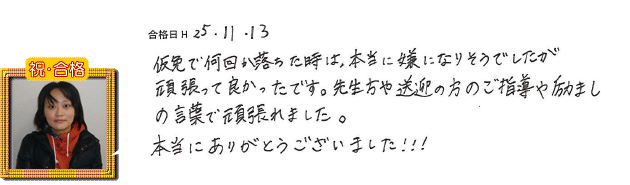 合格日 H 25.11.13
祝・合格
仮免で何回か落ちた時は、本当に嫌になりそうでしたが
頑張って良かったです。先生方や送迎の方のご指導や励まし
の言葉で頑張れました。
本当にありがとうございました!!!